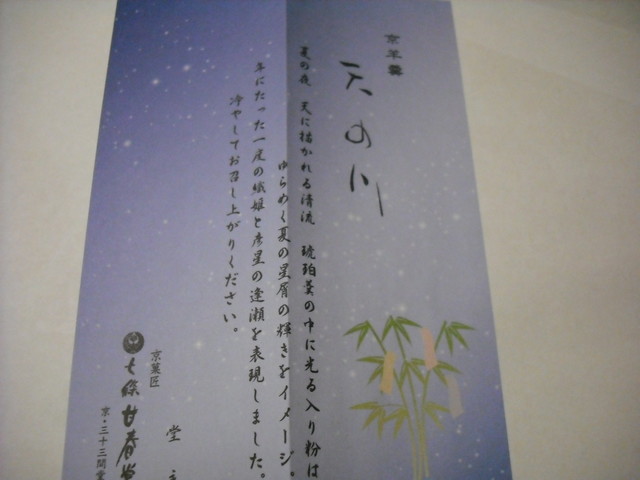 京羊羹
天の川
夏の夜　天に描かれる清流　琥珀羹の中に光る入り粉は
ゆらめく夏の星屑の輝きをイメージ。
年にたった一度の織姫と彦星の逢瀬を表現しました。
冷やしてお召し上がりください。
京菓匠
七條甘春堂
京・三十三間堂
堂